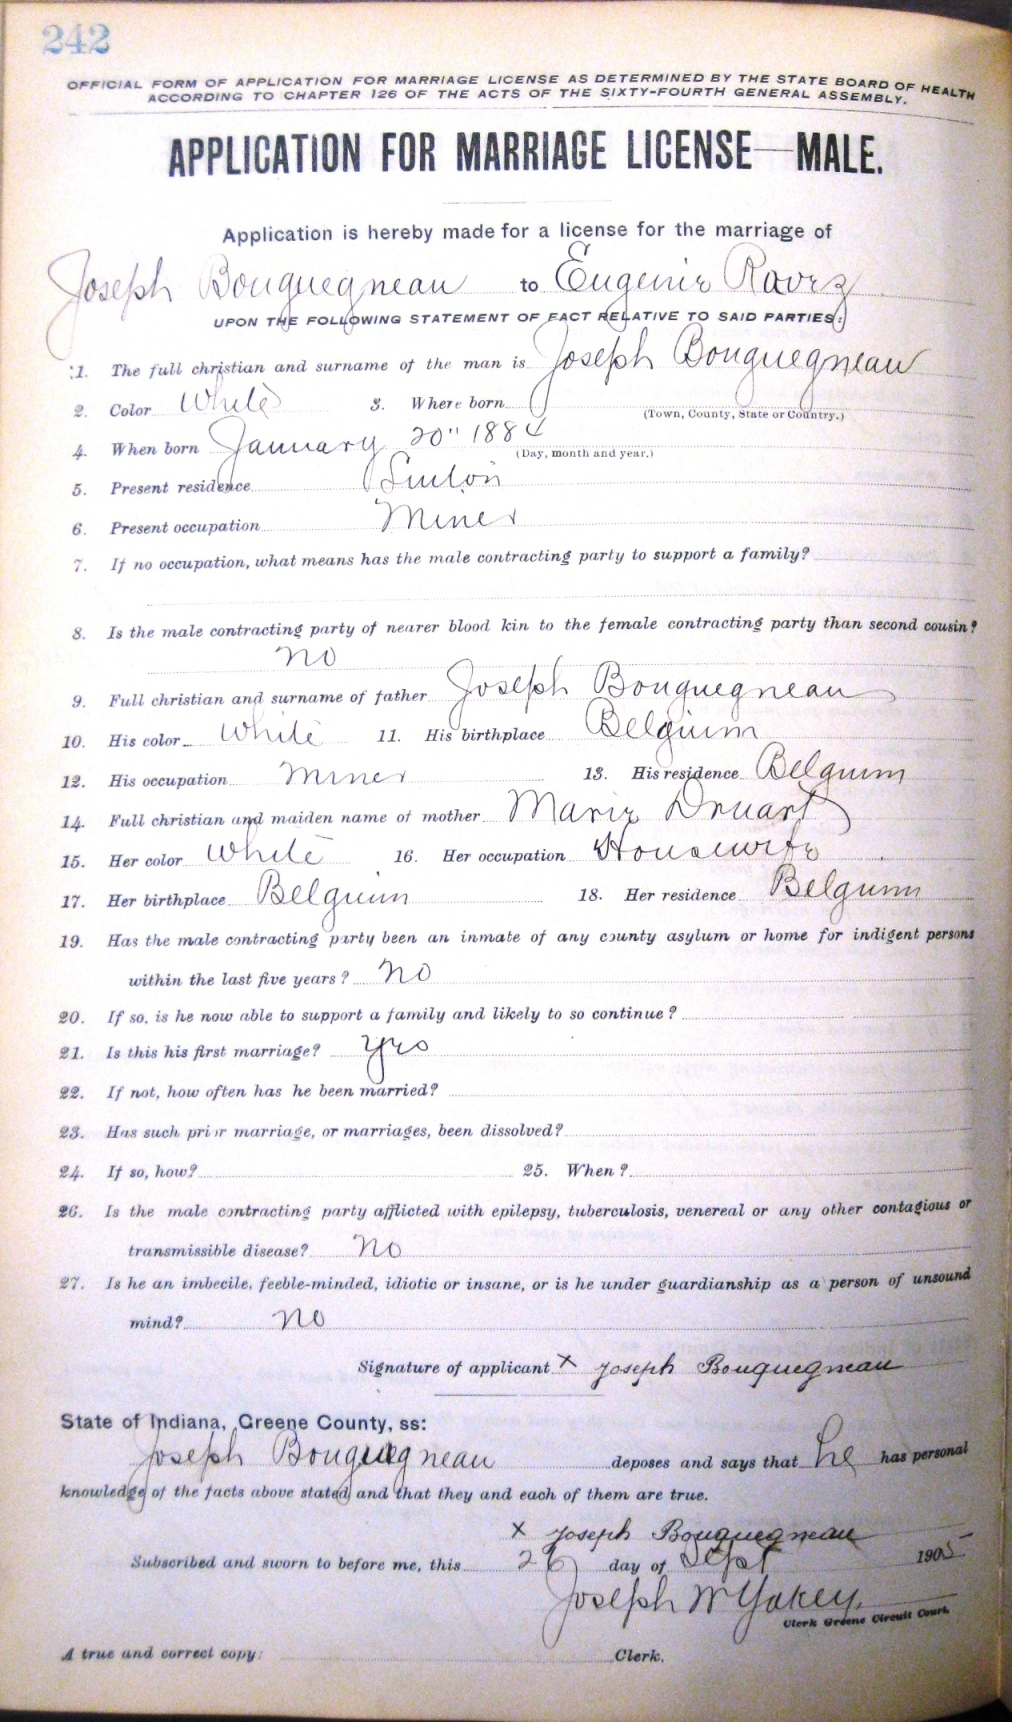 242
OFFICIAL FORM OF APPLICATION FOR MARRIAGE LICENSE AS DETERMINED BY THE STATE BOARD OF HEALTH
ACCORDING TO CHAPTER 126 OF THE ACTS OF THE SIXTY-FOURTH GENERAL ASSEMBLY.
APPLICATION FOR MARRIAGE LICENSE—MALE.
Application is hereby made for a license for the marriage of
Joseph Bouquegneau to Eugenie
UPON THE FOLLOWING STATEMENT OF FACT RELATIVE TO SAID PARTIES:
1. The full christian and surname of the man is Joseph Bouquegneau
2. Color White 3. Where born
(Town, County, State or Country.)
4. When born January 20" 1884
(Day, month and year.)
5. Present residence Linton
6. Present occupation Miner
7. If no occupation, what means has the male contracting party to support a family?
8. Is the male contracting party of nearer blood kin to the female contracting party than second cousin?
No
9. Full christian and surname of father Joseph Bouquegneau
10. His color White 11. His birthplace Belgium
12. His occupation Miner 13. His residence Belgium
14. Full christian and maiden name of mother Marie Druart
15. Her color White 16. Her occupation Housewife
17. Her birthplace Belgium 18. Her residence Belgium
19. Has the male contracting party been an inmate of any county asylum or home for indigent persons
within the last five years? No
20. If so, is he now able to support a family and likely to so continue?
21. Is this his first marriage? Yes
22. If not, how often has he been married?
23. Has such prior marriage, or marriages, been dissolved?
24. If so, how? 25. When?
26. Is the male contracting party afflicted with epilepsy, tuberculosis, venereal or any other contagious or
transmissible disease? No
27. Is he an imbecile, feeble-minded, idiotic or insane, or is he under guardianship as a person of unsound
mind? No
Signature of applicant X Joseph Bouquegneau
State of Indiana, Greene County, ss:
Joseph Bouquegneau deposes and says that he has personal
knowledge of the facts above stated and that they and each of them are true.
X Joseph Bouquegneau
Subscribed and sworn to before me, this 26 day of Sept 1905
Joseph W Yakey.
Clerk Greene Circuit Court.
A true and correct copy: Clerk.